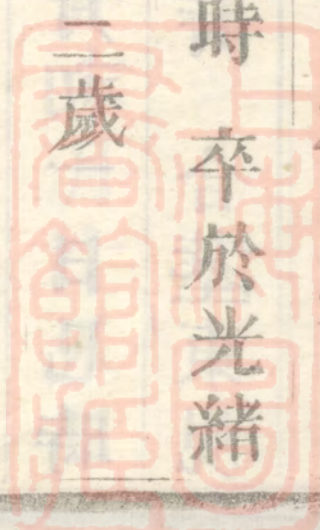 時 卒於光緒
二歲